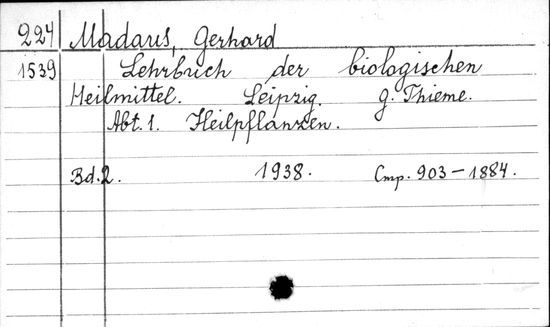 224 Madaus, Gerhard
1539 Lehrbuch der biologischen
Heilmittel. Leipzig. G. Thieme.
Abt. 1. Heilpflanzen.
Bd. 2. 1938. Стр. 903-1884.